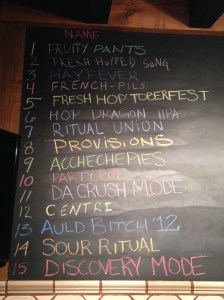 NAME
1 FRUITY PANTS
2 FRESH HOPPED SONG
3 HAYFEVER
4 FRENCH-PILS
5 FRESH HOPTOBERFEST
6 HOP DRAGON IIPA
7 RITUAL UNION
8 PROVISIONS
9 ACCHECHEPIES
10 PARTY BOI
11 DA CRUSH MODE
12 CENTRI
13 AULD BITCH '12
14 SOUR RITUAL
15 DISCOVERY MODE